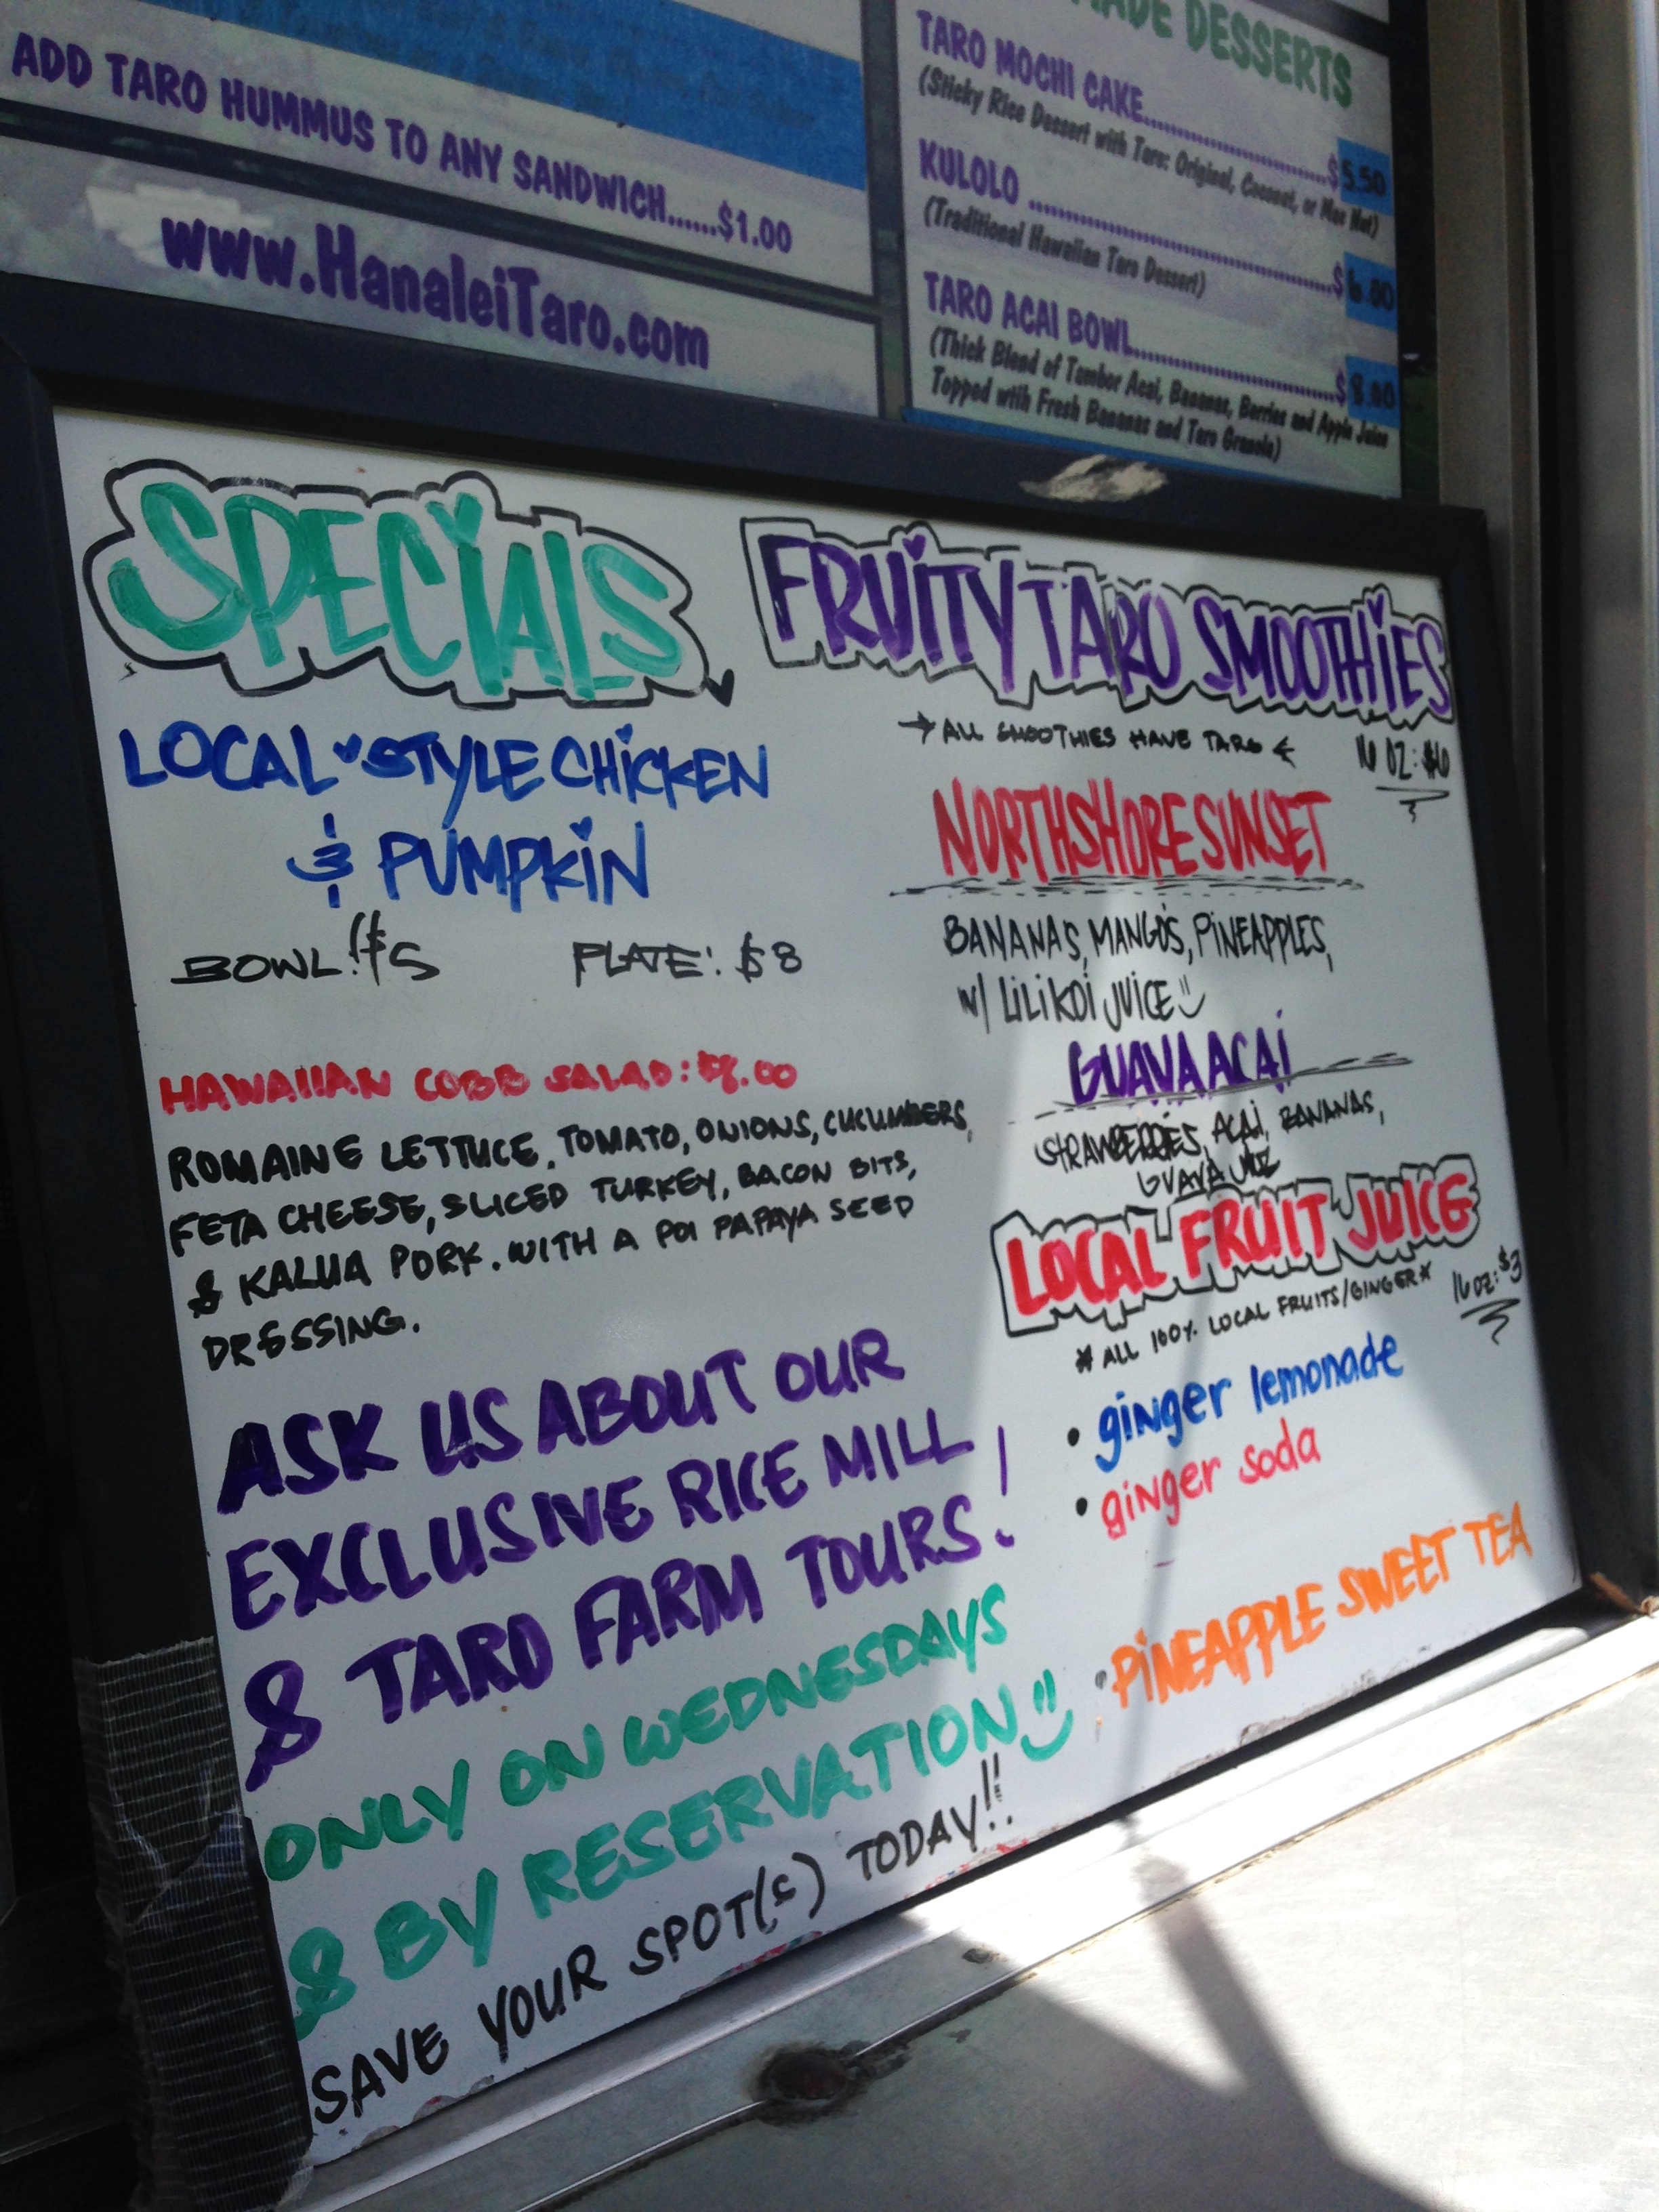 ADD TARO HUMMUS TO ANY SANDWICH......$1.00
www.HanaleiTaro.com
DESSERTS
TARO MOCHI CAKE..............................$5.50
(Sticky Rice Dessert with Taro: Original, Coconut, or Mac Nut)
KULOLO ..............................................$6.00
(Traditional Hawaiian Taro Dessert)
TARO ACAI BOWL..............................$8.00
(Thick Blend of Tambor Acai, Bananas, Berries and Apple Juice
Topped with Fresh Bananas and Taro Granola)
SPECIALS
LOCAL STYLE CHICKEN
& PUMPKIN
BOWL: $5 PLATE: $8
HAWAIIAN COBB SALAD: $8.00
ROMAINE LETTUCE, TOMATO, ONIONS, CUCUMBERS,
FETA CHEESE, SLICED TURKEY, BACON BITS,
& KALUA PORK. WITH A POI PAPAYA SEED
DRESSING.
ASK US ABOUT OUR
EXCLUSIVE RICE MILL
& TARO FARM TOURS!
ONLY ON WEDNESDAYS
& BY RESERVATION
SAVE YOUR SPOT(S) TODAY!!
FRUITY TARO SMOOTHIES
→ ALL SMOOTHIES HAVE TARO ← 16 OZ: $6
NORTHSHORE SUNSET
BANANAS, MANGO'S, PINEAPPLES,
W/ LILIKOI JUICE
GUAVA ACAI
STRAWBERRIES, ACAI, BANANAS,
GUAVA JUICE
LOCAL FRUIT JUICE
* ALL 100% LOCAL FRUITS/GINGER* 16 OZ: $3
• ginger lemonade
• ginger soda
• PINEAPPLE SWEET TEA